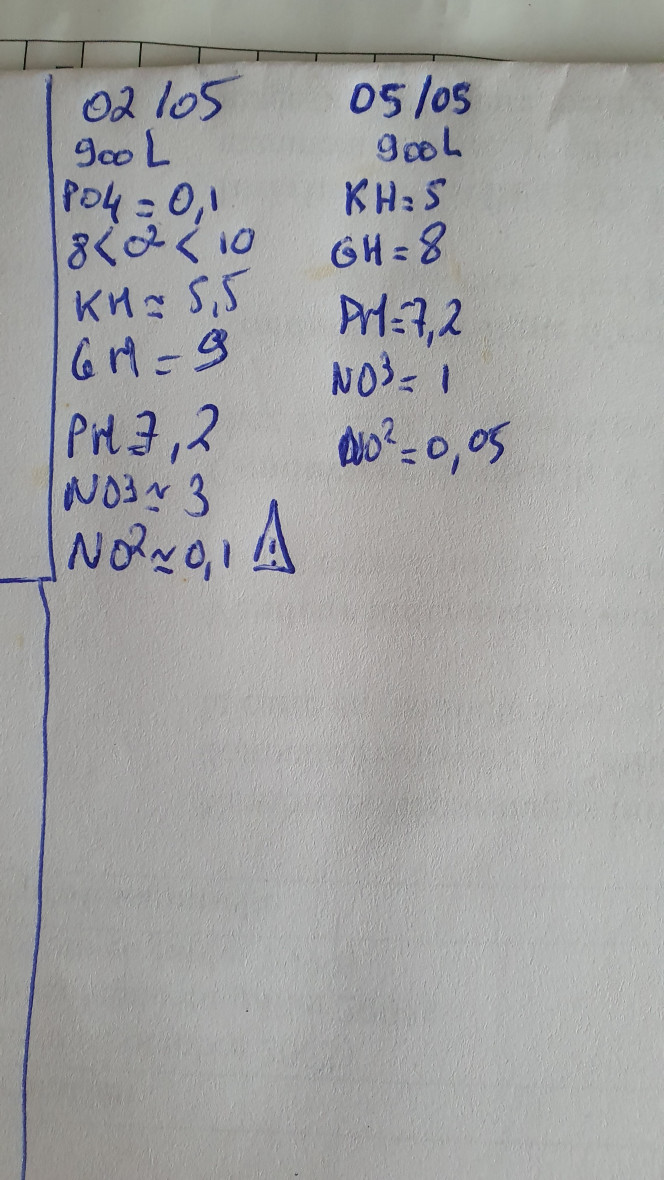 02/05
900L
PO4 = 0,1
8 < O² < 10
KH ≃ 5,5
GH = 9
PH = 7,2
NO3 ≃ 3
NO² ≃ 0,1 ⚠
05/05
900L
KH = 5
GH = 8
PH = 7,2
NO³ = 1
NO² = 0,05